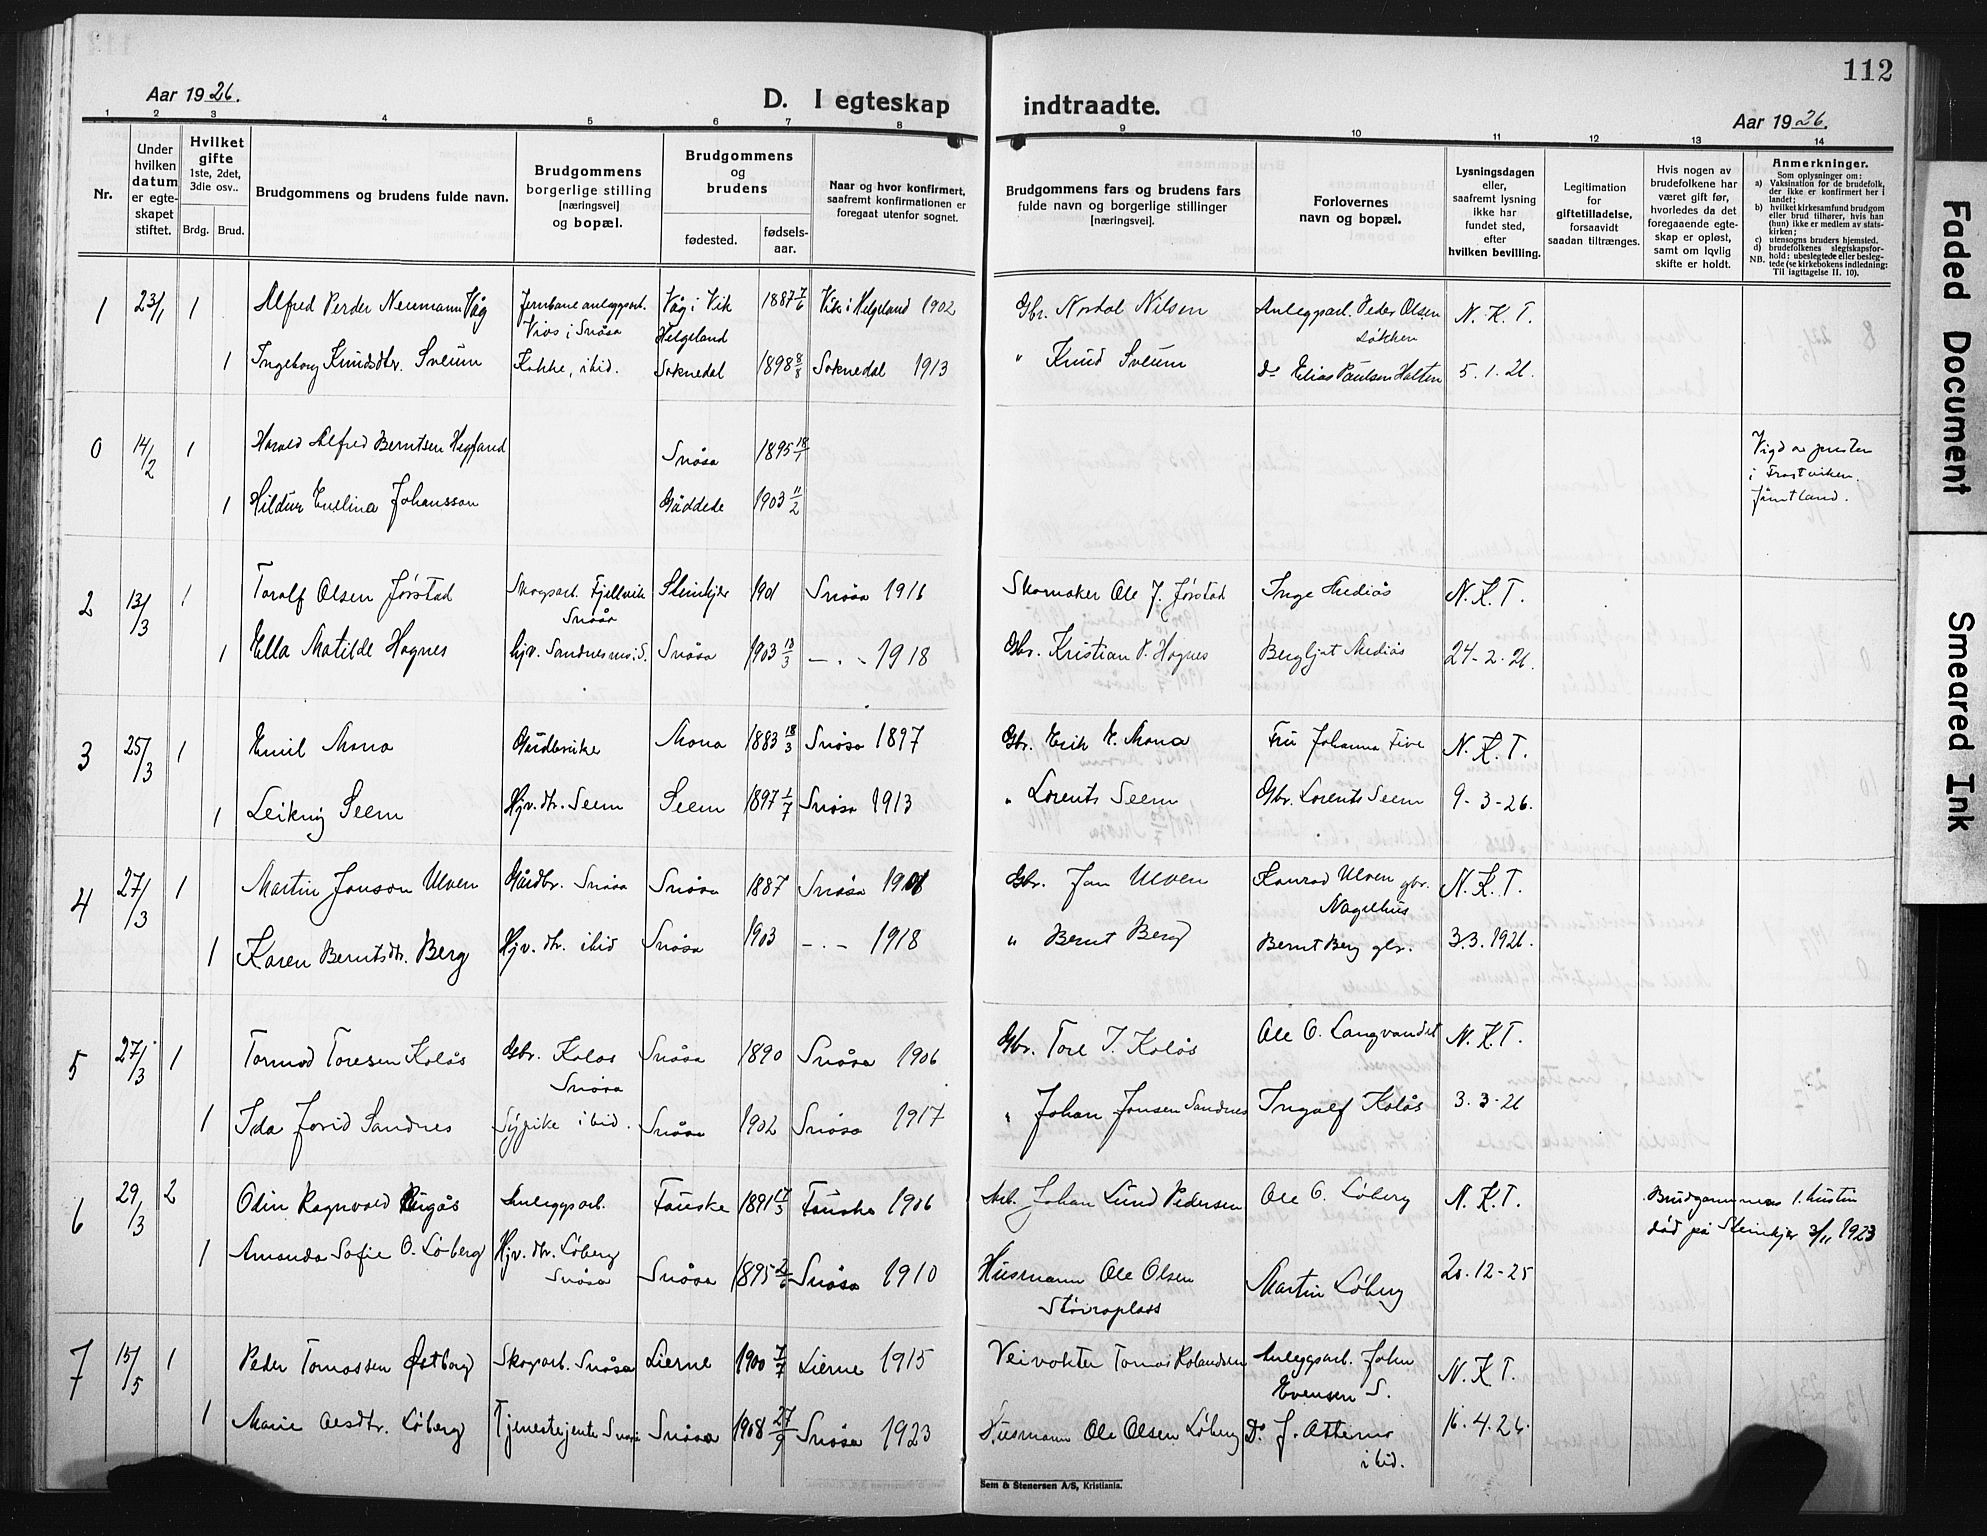 112
Aar 1926.
D. I egteskap indtraadte.
Aar 1926.
1 2 3 4 5 6 7 8 9 10 11 12 13 14
Nr.
Under hvilken datum er egte-skapet stiftet.
Hvilket gifte 1ste, 2det, 3die osv..
Brdg. Brud.
Brudgommens og brudens fulde navn.
Brudgommens borgerlige stilling [næringsvei] og bopæl.
Brudgommens og brudens
fødested. fødsels-aar.
Naar og hvor konfirmert, saafremt konfirmationen er foregaat utenfor sognet.
Brudgommens fars og brudens fars fulde navn og borgerlige stillinger [næringsvei]
Forlovernes navn og bopæl.
Lysningsdagen eller, saafremt lysning ikke har fundet sted, efter hvilken bevilling.
Legitimation for giftetilladelse, forsaavidt saadan tiltrænges.
Hvis nogen av brudefolkene har været gift før, hvorledes da det foregaaende egte-skap er opløst, samt om lovlig skifte er holdt.
Anmerkninger.
Som oplysninger om:
a) Vaksination for de brudefolk, der ikke er konfirmert her i landet;
b) hvilket kirkesamfund brudgom eller brud tilhører, hvis han (hun) ikke er medlem av stats-kirken;
c) utensogns bruders hjemsted.
d) brudefolkenes slegtskapsfor-hold: ubeslegtede eller besleg-tede (se kirkebokens indledning:
NB. Til iagttagelse II. 10).
1 23/1 1 Alfred Perder Neumann Våg Jernbaneanleggsarb. Våg i Vik 1887 7/6 Vik i Helgeland 1902 Gbr. Nordal Nilsen Anleggsarb. Peder Olsen N. K. T.
Vios i Snåsa Helgeland Løkken
1 Ingeborg Knudsdtr. Sveum Kokke, ibid. Soknedal 1898 8/8 Soknedal 1913 " Knud Sveum Do Elias Paulsen Halten 5. 1. 26.
0 14/2 1 Harald Alfred Berntsen Snåsa 1895 18/1 Vigd av presten
i Frostviken.
1 Hildur Evelina Johansson Gäddede 1903 11/2 Jämtland.
2 13/3 1 Toralf Olsen Jørstad Skogsarb. Fjellvik Steinkjer 1901 Snåsa 1916 Skomaker Ole J. Jørstad Inge Mediås N. K. T.
Snåsa
1 Ella Matilde Hognes Hjv. Sandnesmo i S. Snåsa 1903 13/3 —〃— 1918 Gbr. Kristian P. Hognes Bergljot Mediås 24-2-26.
3 25/3 1 Emil Mona Gårdbruker Mona 1883 18/3 Snåsa 1897 Gbr. Erik E. Mona Fru Johanna Five N. K. T.
1 Leikny Seem Hjv. dtr. Seem Seem 1897 1/7 Snåsa 1913 " Lorents Seem Gbr. Lorents Seem 9-3-26.
4 27/3 1 Martin Jonson Ulven Gårdbr. Snåsa Snåsa 1887 Snåsa 1901 Gbr. Jon Ulven Konrad Ulven gbr. N. K. T.
Nagelhus
1 Karen Berntsdtr. Berg Hjv. dtr. ibid Snåsa 1903 —〃— 1918 " Bernt Berg Bernt Berg gbr. 3.3.1926.
5 27/3 1 Tormod Toresen Kolås Gbr. Kolås Snåsa 1890 Snåsa 1906 Gbr. Tore T. Kolås Ole O. Langvandet N. K. T.
Snåsa
1 Ida Jorid Sandnes Sypike ibid. Snåsa 1902 Snåsa 1917 " Johan Jonsen Sandnes Ingolf Kolås 3. 3-26
6 29/3 2 Odin Ragnvald Anleggsarb. Fauske 1891 Fauske 1906 Arb. Johan Lund Pedersen Ole O. Løberg N. K. T. Brudgommens 1. hustru
død på Steinkjer 3/11 1923
1 Amanda Sofie O. Løberg Hjv. dtr. Løberg
Snåsa Snåsa 1895 2/6 Snåsa 1910 Husmann Ole Olsen Martin Løberg 20-12-25
Støvraplass
7 15/5 1 Peder Tomassen Østborg Skogsarb. Snåsa Lierne 1900 7/7 Lierne 1915 Veivokter Tomas Rolandsen Anleggsarb. John N. K. T.
Evensen S.
1 Marie Olesdtr. Løberg Tjenestejente Snåsa Snåsa 1908 27/9 Snåsa 1923 Husmann Ole Olsen Løberg Do J. Atterno 16. 4. 26.
ibid.
Sem & Stenersen A/S, Kristiania.
Faded Document
Smeared Ink